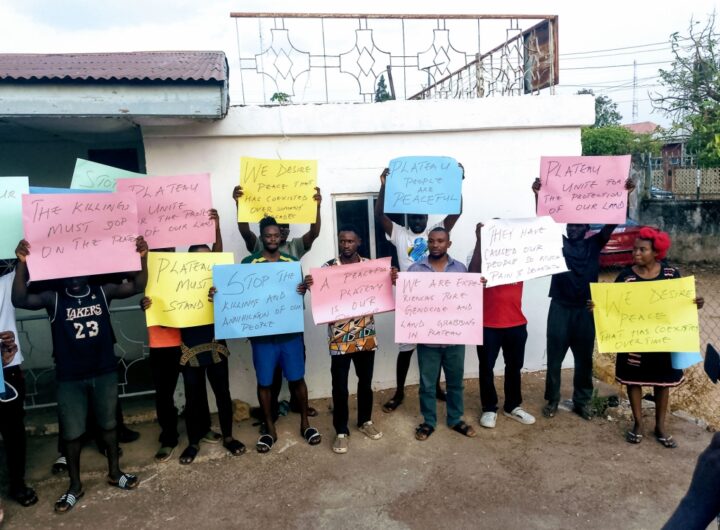 STOP
PLATEAU
UNITE
THE KILLING
MUST STOP
ON THE
OUR LAND
WE DESIRE
PEACE THAT
HAS COEXISTED
OVER SO MANY
PLATEAU
PEOPLE
ARE
PEACEFUL
PLATEAU
UNITE FOR
THE PROTECTION
OF OUR LAND
PLATEAU
MUST
STAND
STOP THE
KILLING AND
ANNIHILATION OF
OUR PEOPLE
A PEACEFUL
PLATEAU
IS OUR
WE ARE EXPE-
RIENCING PURE
GENOCIDE AND
LAND GRABBING
IN PLATEAU
THEY HAVE
CAUSED OUR
PEOPLE SO MUCH
PAIN &
WE DESIRE
PEACE
THAT HAS COEXISTED
OVERTIME
LAKERS
23
LAKERS